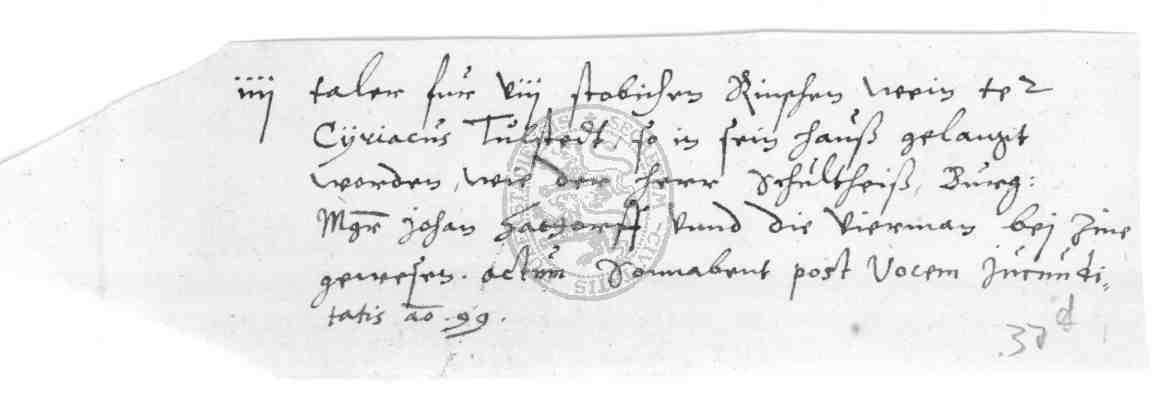 iiij taler fur viij stobichen Rinschen wein
Cÿriacus Tulstedt, so in sein hauß gelangt
worden, wie der herr Schultheiß, Burg:
Mgr Johan vnnd die Vierman bei Ime
gewesen. actum Sonnabent post Vocem Jucundi„
tatis ao. 99.
37 d